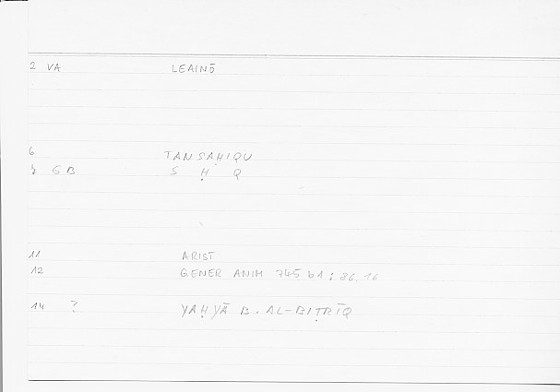 2 VA LEAINŌ
6 TANSAḤIQU
5B S Ḥ Q
11 ARIST
12 GENER ANIM 745 b1 ; 86, 16
14 ? YAḤYĀ B. AL-BIṬRĪQ